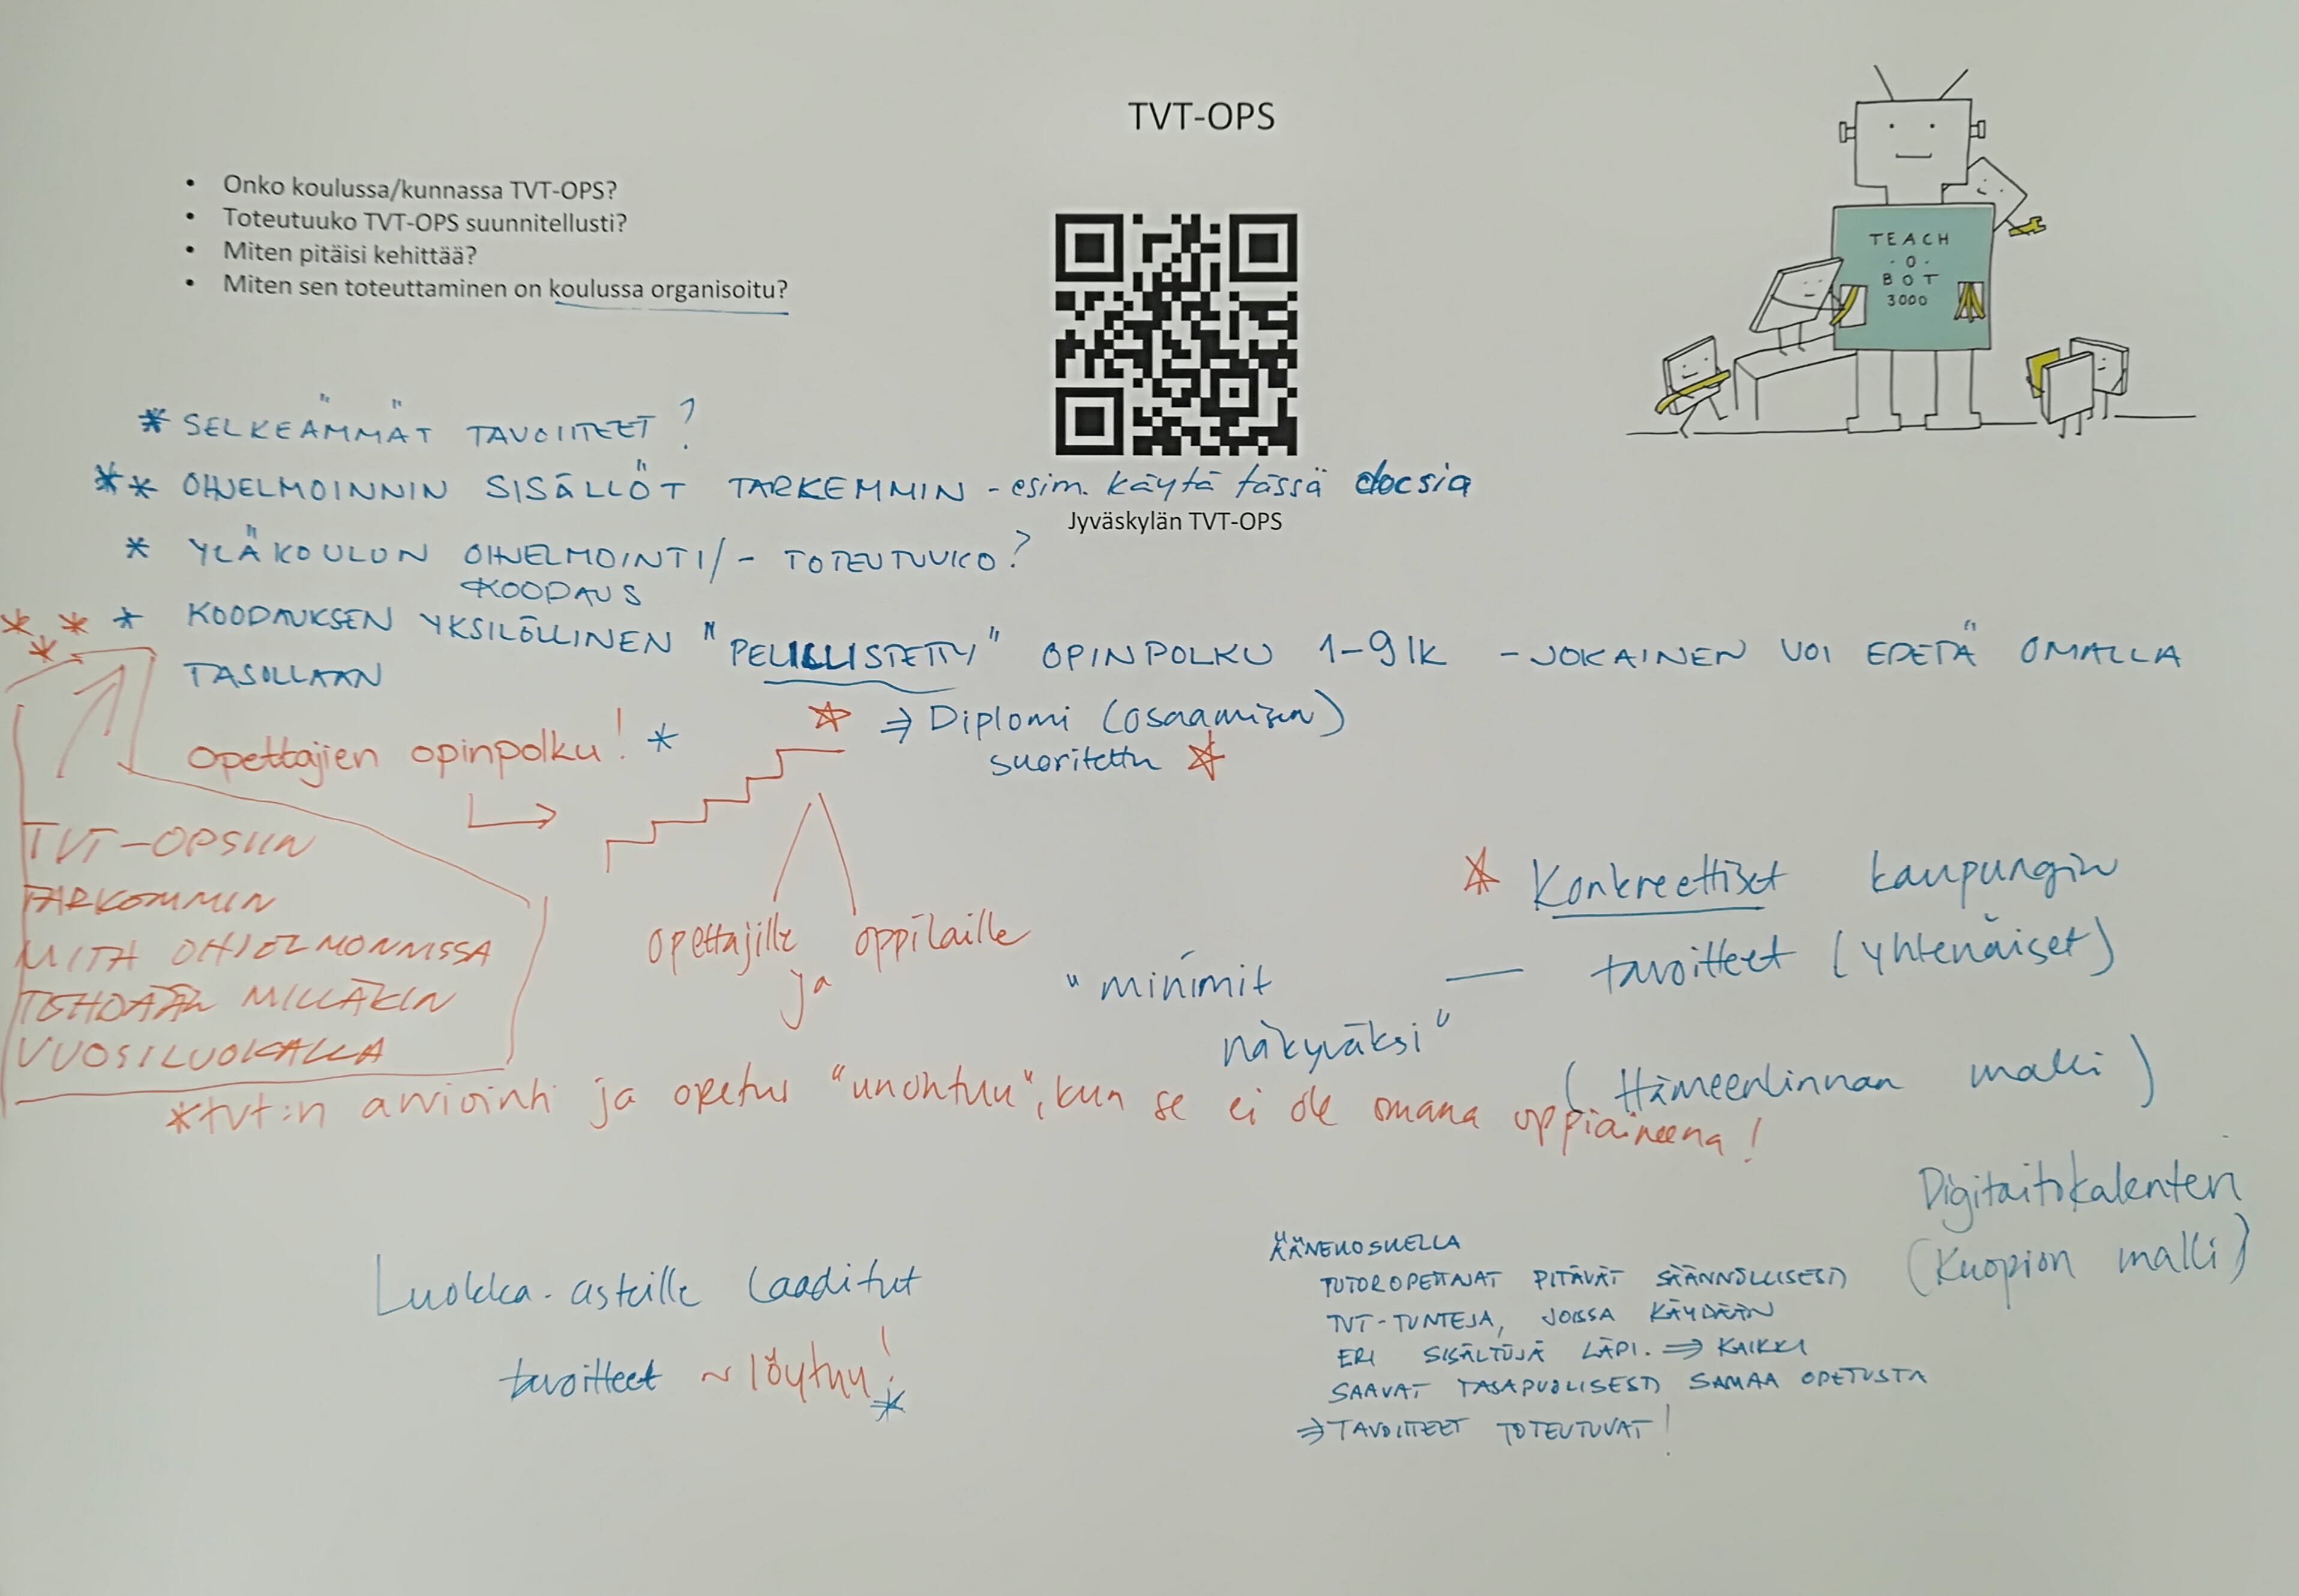 TVT-OPS
• Onko koulussa/kunnassa TVT-OPS?
• Toteutuuko TVT-OPS suunnitellusti?
• Miten pitäisi kehittää?
• Miten sen toteuttaminen on koulussa organisoitu?
TEACH
-O-
BOT
3000
* SELKEÄMMÄT TAVOITTEET?
** OHJELMOINNIN SISÄLLÖT TARKEMMIN - esim. käytä tässä docsia
Jyväskylän TVT-OPS
* YLÄKOULUN OHJELMOINTI/- TOTEUTUUKO?
KOODAUS
* * * * KOODAUKSEN YKSILÖLLINEN "PELILLISTETTY" OPINPOLKU 1-9 lk - JOKAINEN VOI EDETÄ OMALLA
TASOLLAAN
⇒ Diplomi (osaamisen)
suoritettu
Opettajien opinpolku! *
TVT-OPSIIN
TARKEMMIN
MITÄ OHJELMONNISSA
TEHDÄÄN MILLÄKIN
VUOSILUOKALLA
opettajille oppilaille
ja
Konkreettiset kaupungin
"minimit — tavoitteet (yhtenäiset)
näkyväksi"
(Hämeenlinnan malli)
*tvt:n arviointi ja opetus "unohtuu", kun se ei ole omana oppiaineena!
Digitaitokalenteri
(Kuopion malli)
Luokka-asteille laaditut
tavoitteet ~ löytyy! *
ÄÄNEKOSKELLA
TUTOROPETTAJAT PITÄVÄT SÄÄNNÖLLISESTI
TVT-TUNTEJA, JOISSA KÄYDÄÄN
ERI SISÄLTÖJÄ LÄPI. ⇒ KAIKKI
SAAVAT TASAPUOLISESTI SAMAA OPETUSTA
⇒ TAVOITTEET TOTEUTUVAT!